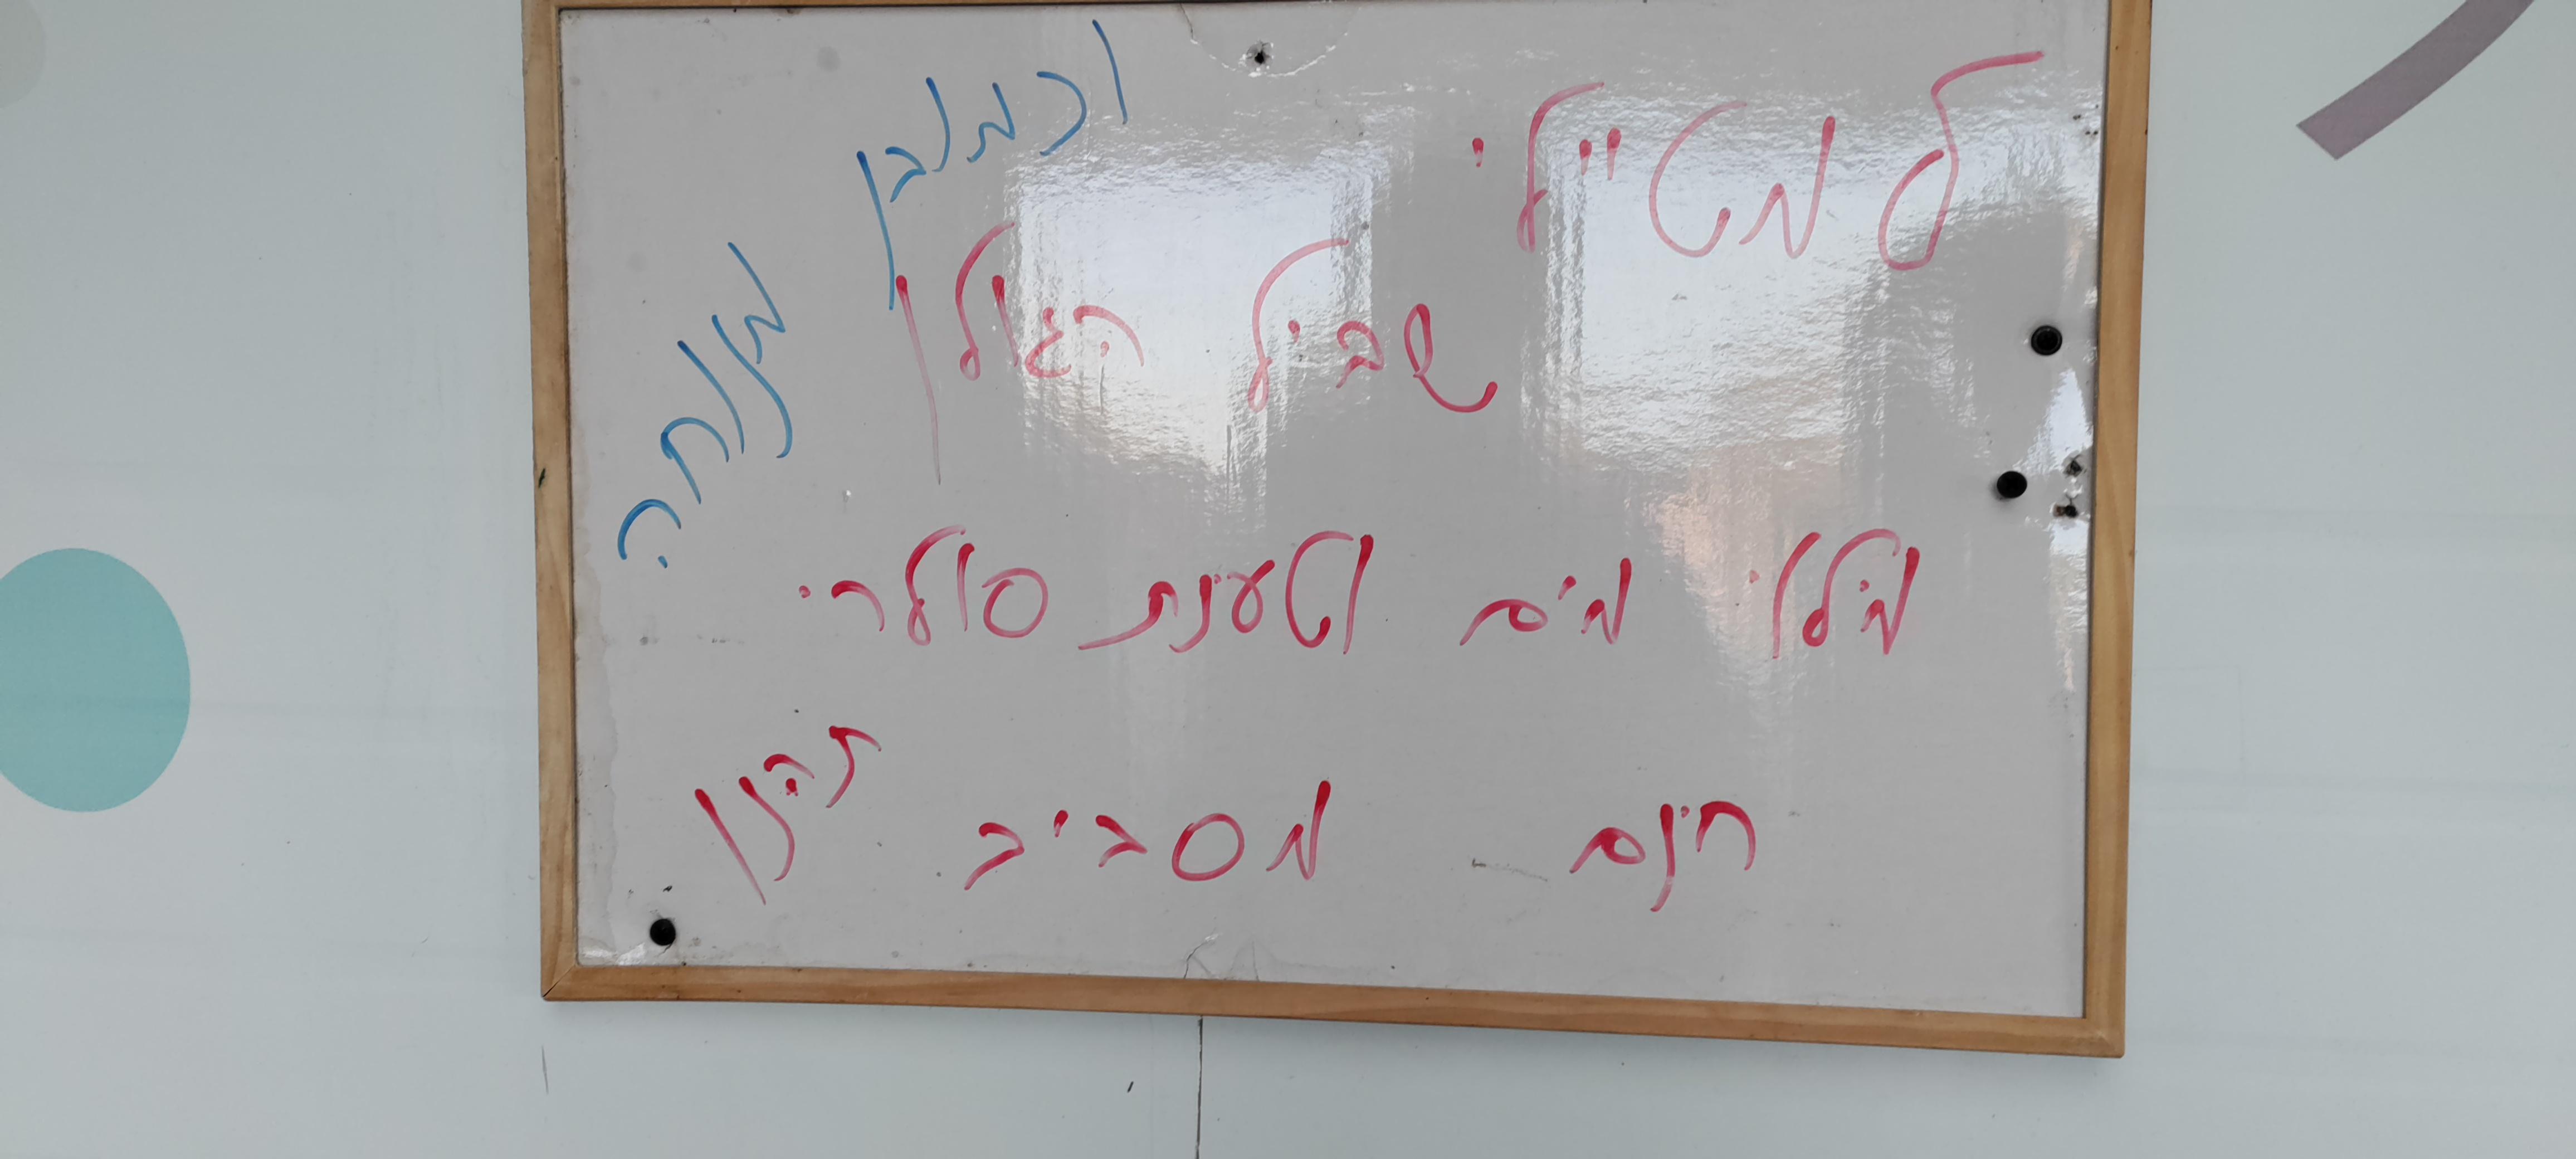 למטיילי
שביל הגולן
מילוי מים וטענת סולרי
חינם מסביב
תהנו
וכמובן
מנוחה